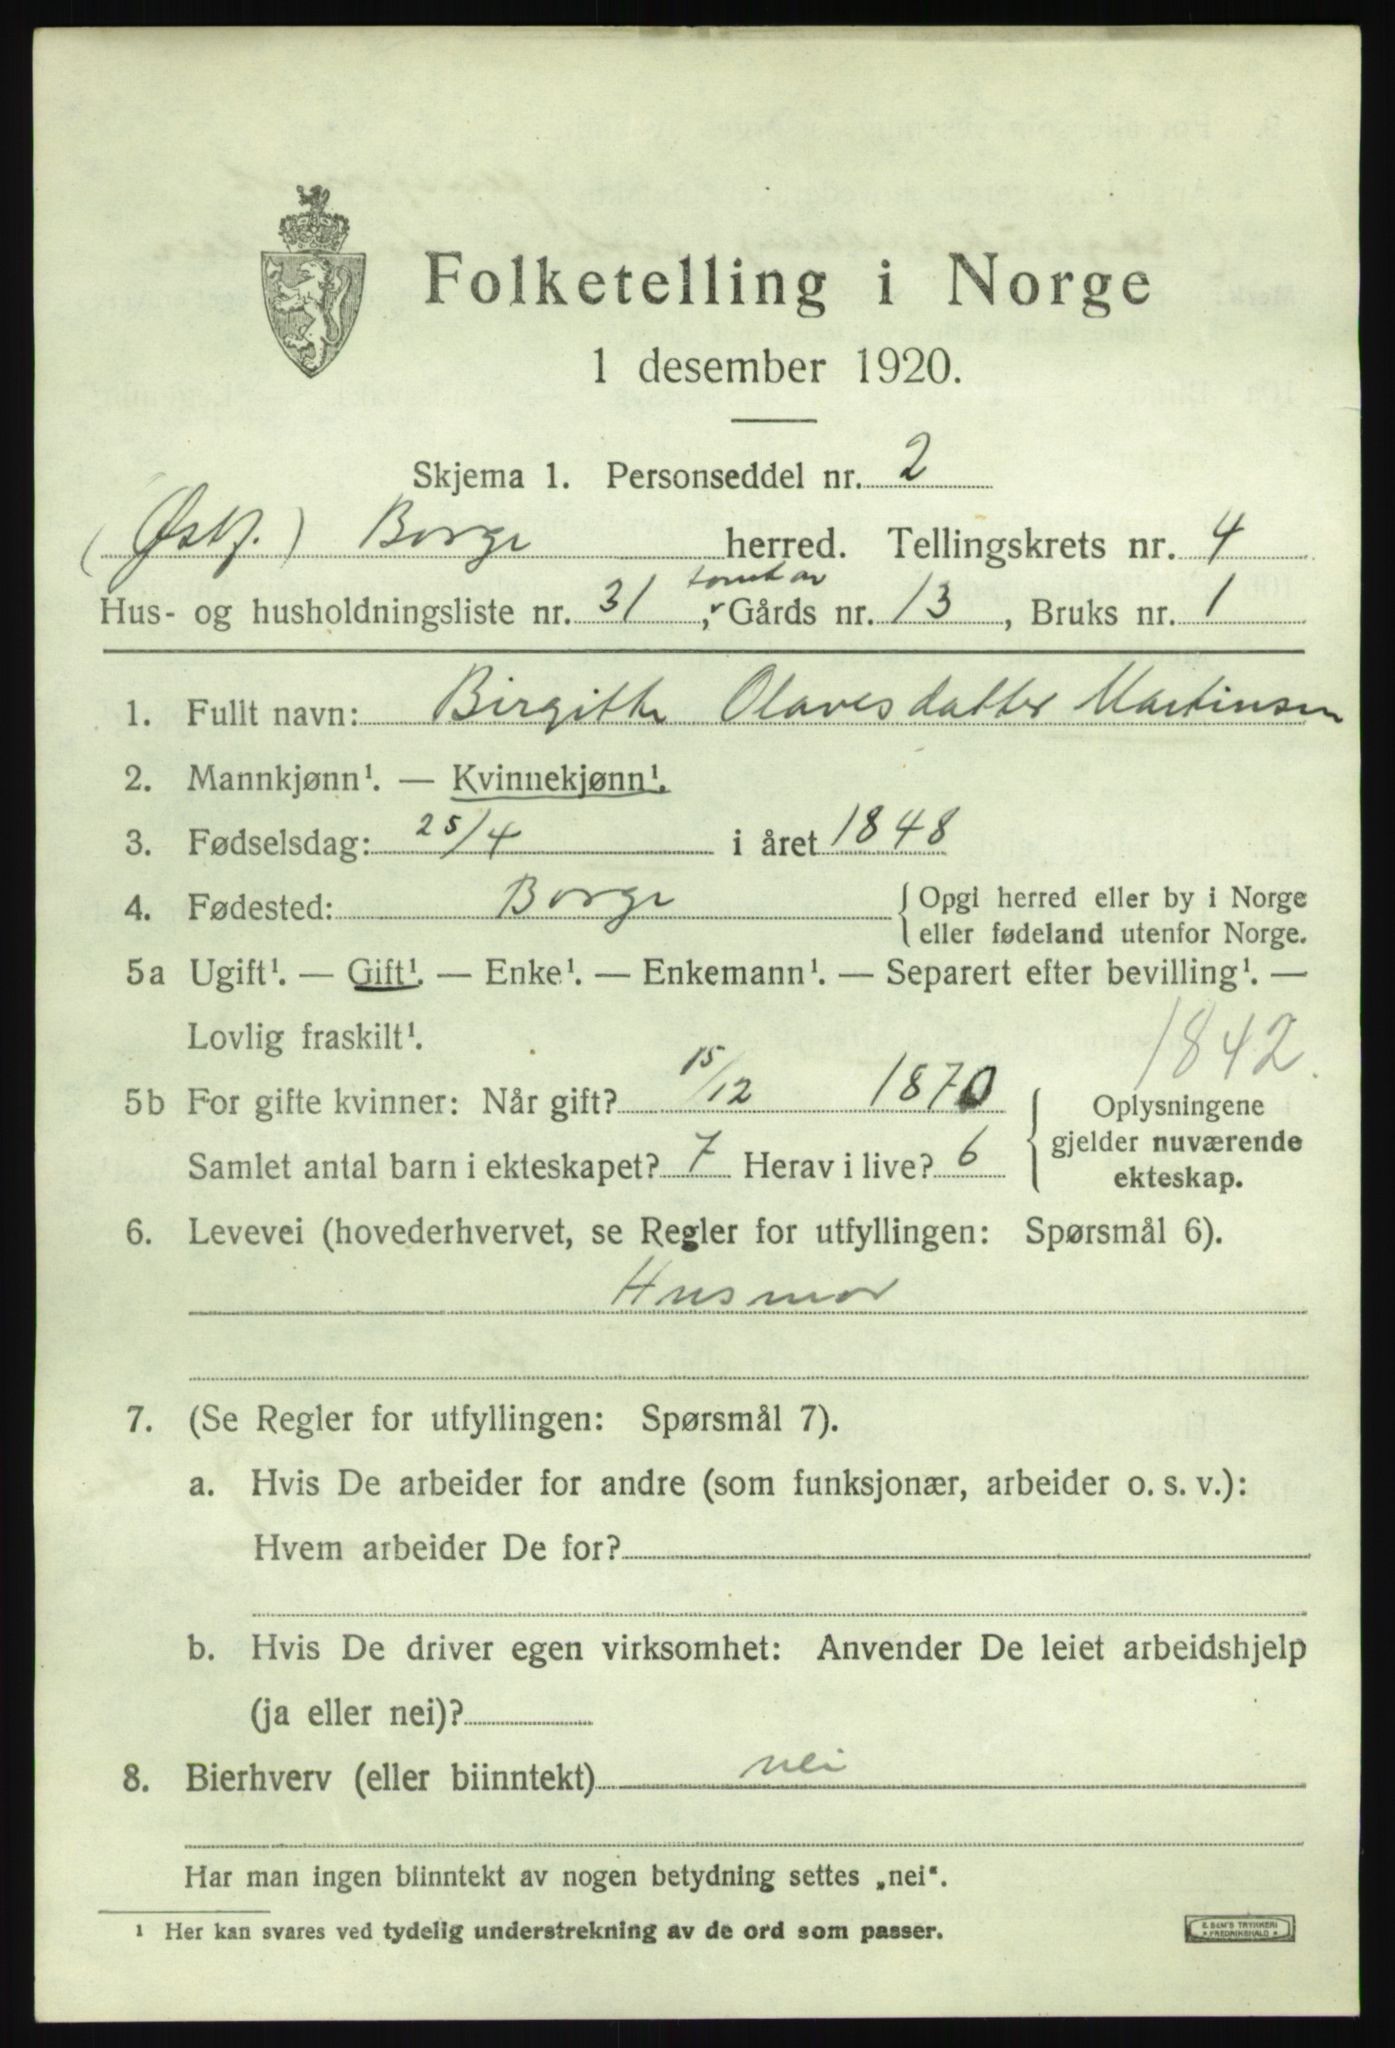 Folketelling i Norge
1 desember 1920.
Skjema 1. Personseddel nr. 2
(Østf.) Borge herred. Tellingskrets nr. 4
tomt av
Hus- og husholdningsliste nr. 31, Gårds nr. 13, Bruks nr. 1
1. Fullt navn: Birgitte Olavesdatter Martinsen
2. Mannkjønn¹. — Kvinnekjønn¹.
3. Fødselsdag: 25/4 i året 1848
4. Fødested: Borge { Opgi herred eller by i Norge
eller fødeland utenfor Norge.
5a Ugift¹. — Gift¹. — Enke¹. — Enkemann¹. — Separert efter bevilling¹. —
Lovlig fraskilt¹.
1842.
5b For gifte kvinner: Når gift? 15/12 1870
Samlet antal barn i ekteskapet? 7 Herav i live? 6
{ Oplysningene
gjelder nuværende
ekteskap.
6. Levevei (hovederhvervet, se Regler for utfyllingen: Spørsmål 6).
Husmor
7. (Se Regler for utfyllingen: Spørsmål 7).
a. Hvis De arbeider for andre (som funksjonær, arbeider o. s. v.):
Hvem arbeider De for?
b. Hvis De driver egen virksomhet: Anvender De leiet arbeidshjelp
(ja eller nei)?
8. Bierhverv (eller biinntekt) nei
Har man ingen biinntekt av nogen betydning settes „nei".
¹ Her kan svares ved tydelig understrekning av de ord som passer.
E. SEM'S TRYKKERI
* FREDRIKSHALD *